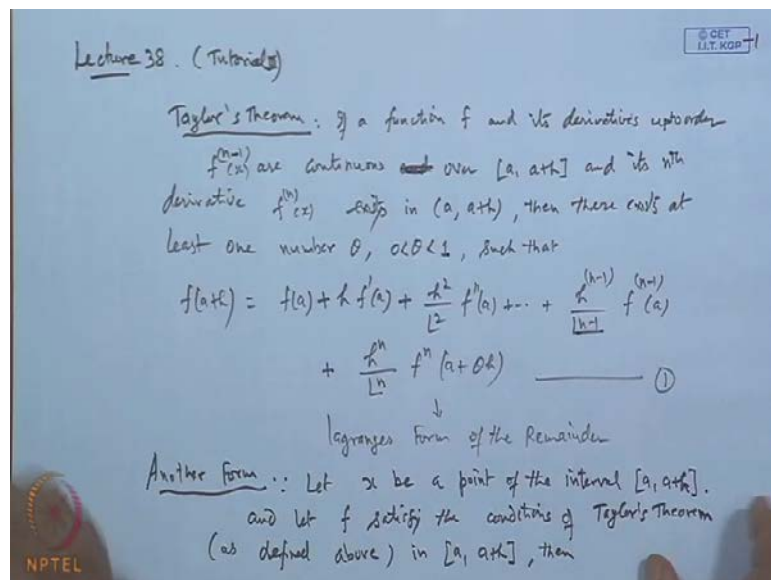 Lecture 38. (Tutorial)
© CET
I.I.T. KGP
-1
Taylor's Theorem: If a function f and its derivatives upto order
f^(n-1)(x) are continuous over [a, a+h] and its nth
derivative f^(n)(x) exists in (a, a+h), then there exists at
least one number θ, 0<θ<1, such that
f(a+h) = f(a) + h f'(a) + h^2/⌊2 f''(a) + ... + h^(n-1)/⌊n-1 f^(n-1)(a)
+ h^n/⌊n f^n (a+θh) ——— ①
↓
lagranges Form of the Remainder
Another Form:: Let x be a point of the interval [a, a+h].
and let f satisfy the conditions of Taylor's Theorem
(as defined above) in [a, a+h], then
NPTEL